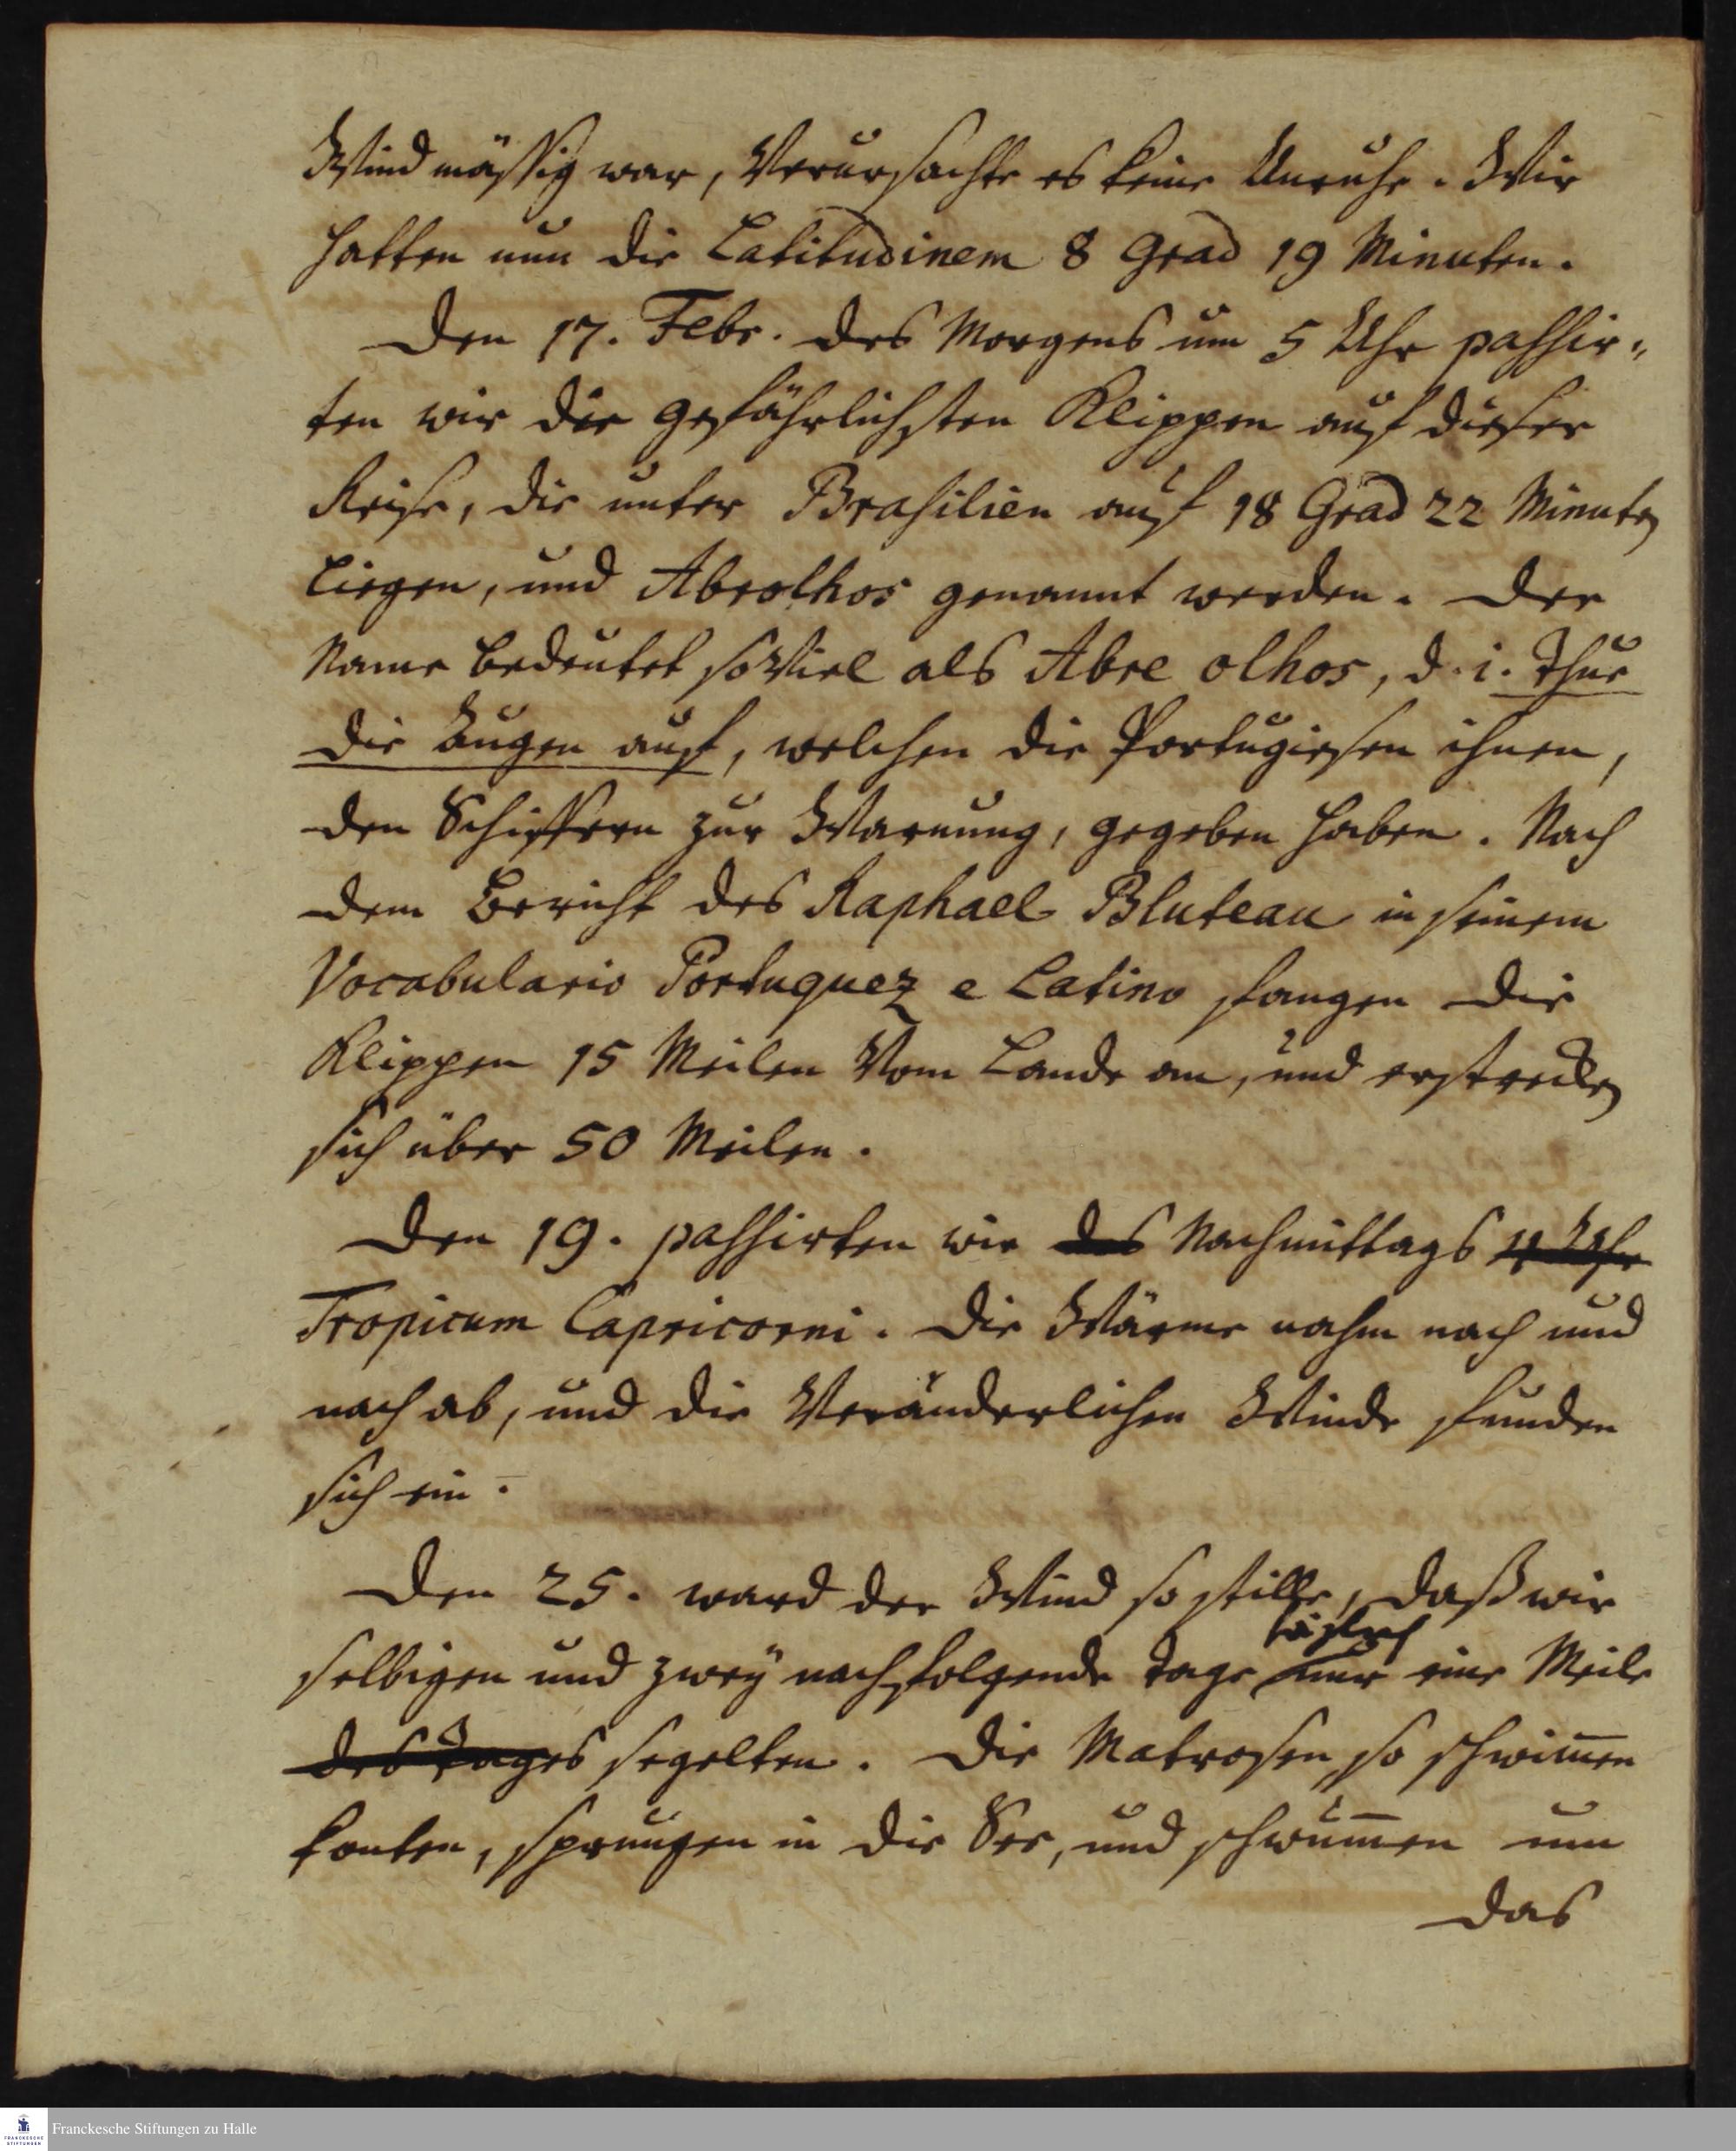 Wind mässig war, Verursachte es keine Unruhe. Wir
hatten nun die Latitudinem 8 Grad 19 Minuten.
Den 17. Febr. des Morgens um 5 Uhr passir-
ten wir die gefährlichsten Klippen auf dieser
Reise, die unter Brasilien auf 18 Grad 22 Minuten
liegen, und Abrolhos genannt werden. Der
Name bedeutet soViel als Abre olhos, d. i. Thue
die Augen auf, welchen die Portugiesen ihnen,
den Schiffern zur Warnung, gegeben haben. Nach
dem Bericht des Raphael Bluteau in seinem
Vocabulario Portuguez e Latino fangen die
Klippen 15 Meilen Vom Lande an, und erstrecken
sich über 50 Meilen.
Den 19. passirten wir des Nachmittags Uhr
Tropicum Capricorni. Die Wärme nahm nach und
nach ab, und die Veränderlichen Winde funden
sich ein.
Den 25. ward der Wind so stille, daß wir
täglich
selbigen und zwey nachfolgende Tage nur eine Meile
des Tages segelten. Die Matrosen, so schwim̅en
konten, sprungen in die See, und schwum̅en um
das
Franckesche Stiftungen zu Halle
FRANCKESCHE
STIFTUNGEN